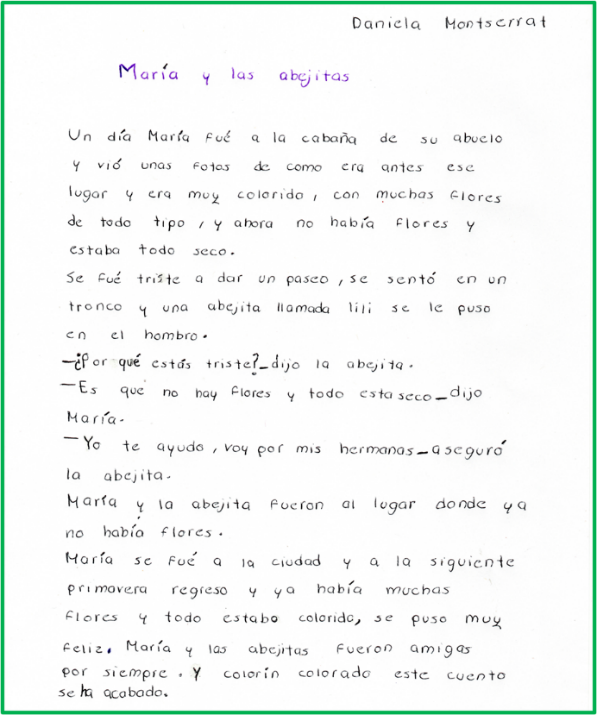 Daniela Montserrat
María y las abejitas
Un día María fué a la cabaña de su abuelo
y vió unas fotos de como era antes ese
lugar y era muy colorido, con muchas flores
de todo tipo, y ahora no había flores y
estaba todo seco.
Se fué triste a dar un paseo, se sentó en un
tronco y una abejita llamada lili se le puso
en el hombro.
—¿Por qué estás triste?—dijo la abejita.
—Es que no hay flores y todo esta seco—dijo
María.
—Yo te ayudo, voy por mis hermanas—aseguró
la abejita.
María y la abejita fueron al lugar donde ya
no había flores.
María se fué a la ciudad y a la siguiente
primavera regreso y ya había muchas
flores y todo estabo colorido, se puso muy
feliz. María y las abejitas fueron amigas
por siempre. Y colorín colorado este cuento
se ha acabado.